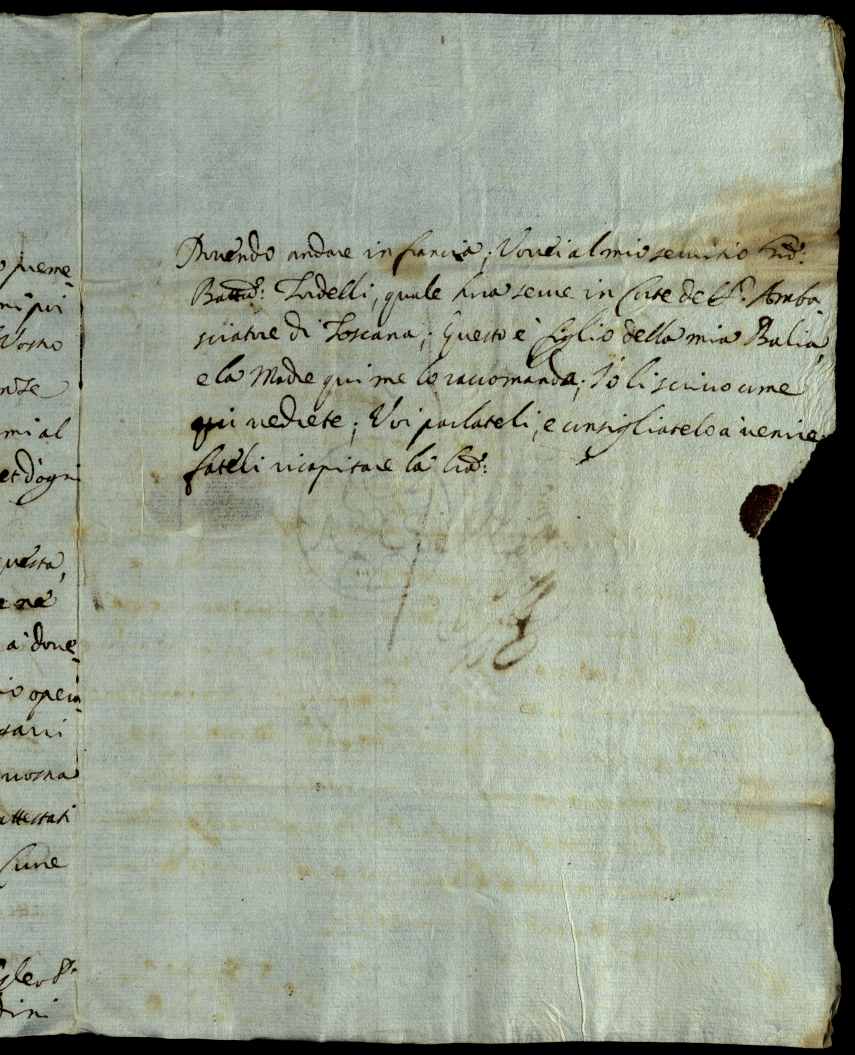 preme-
mi poi
Vostro
enze
mi al
et d'ogni
questa,
e ne
a doue-
io opera-
sarui
vostra
attestati
Cune
dini
Douendo andare in francia; Vorrei al mio seruitio Gio:
Batta: Tordelli, quale hora serue in Corte del S.r Amba
sciatore di Toscana; Questo è figlio della mia Balia,
e la Madre qui me lo raccomanda; Io li scriuo come
qui vedrete; Voi parlateli, e consigliatelo a venire
fateli ricapitare la